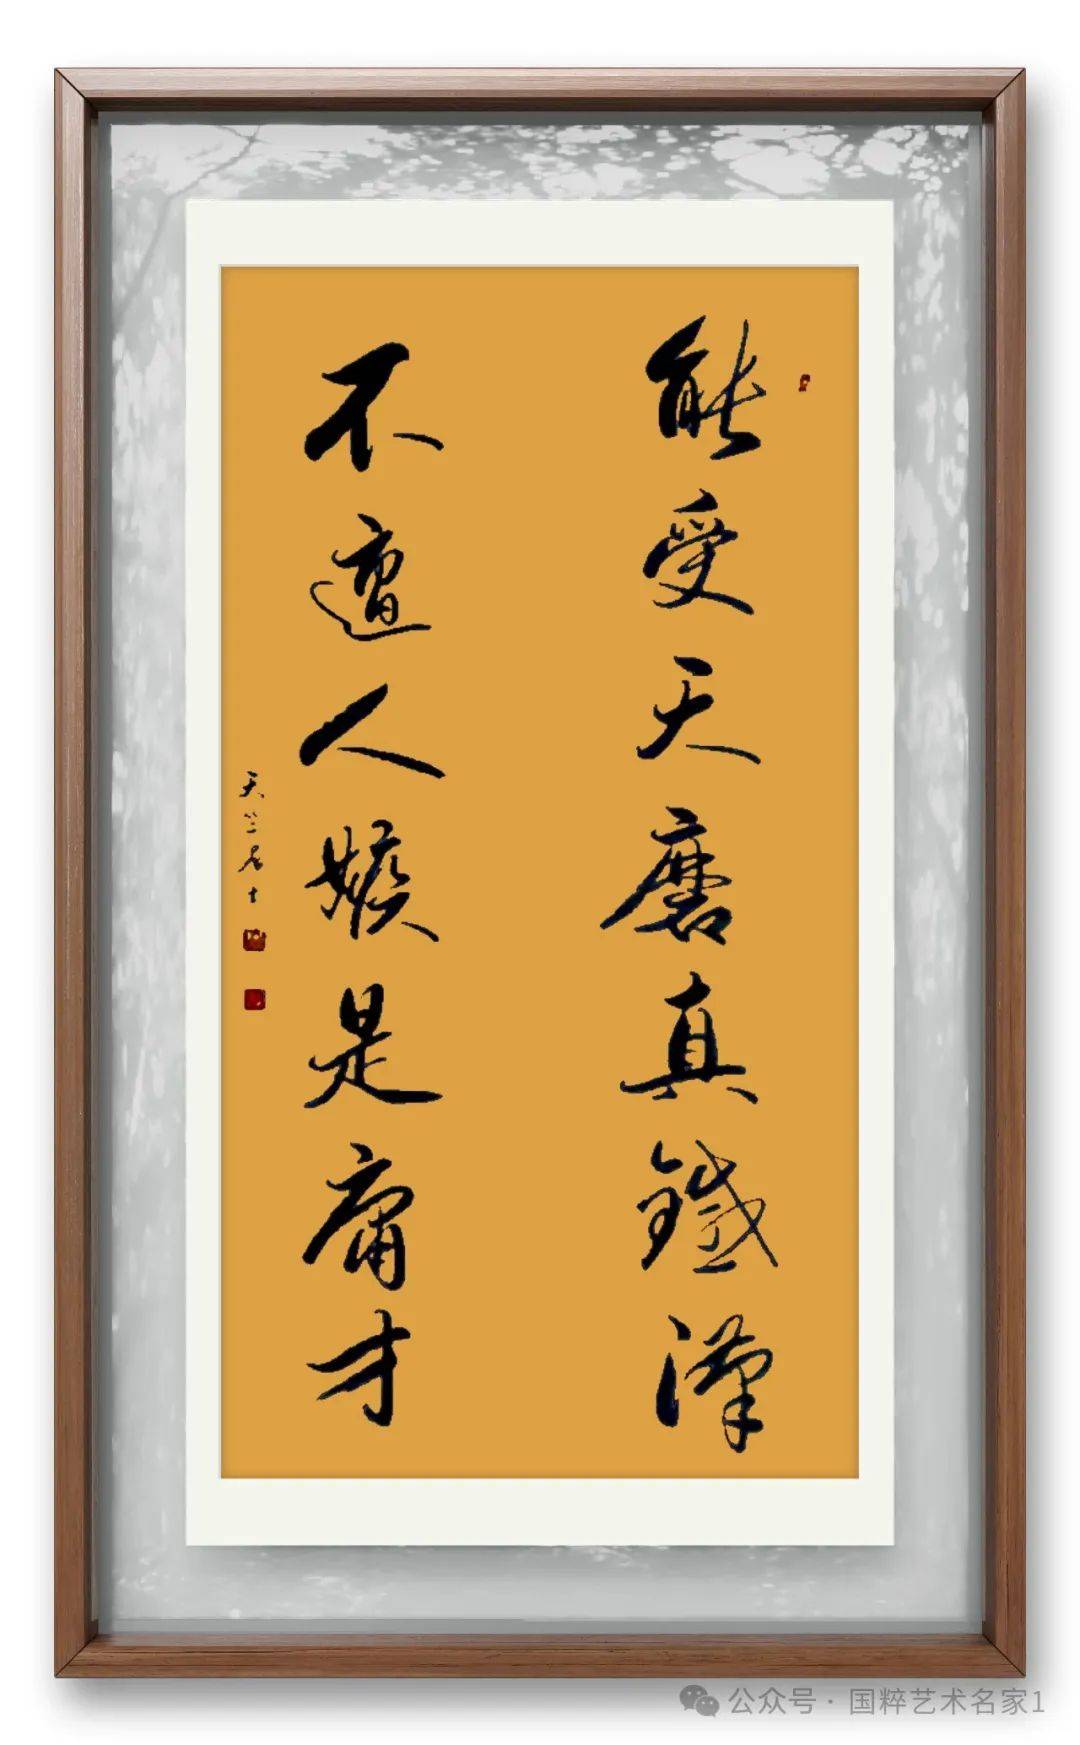 能受天磨真鐵漢
不遭人嫉是庸才
天竺居士
公众号 · 国粹艺术名家1